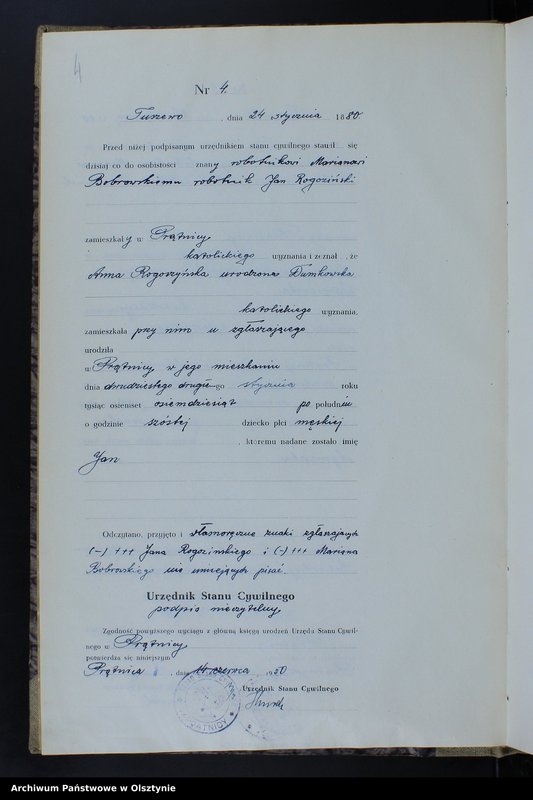 4
Nr 4.
Tuszewo , dnia 24 stycznia 1880
Przed niżej podpisanym urzędnikiem stanu cywilnego stawił się
dzisiaj co do osobistości znany robotnikowi Marianowi
Bobrowskiemu robotnik Jan Rogoziński
zamieszkały w Prątnicy
katolickiego wyznania i zeznał , że
Anna Rogoszyńska urodzona Dumkowska
katolickiego wyznania,
zamieszkała przy nim u zgłaszającego
urodziła
w Prątnicy w jego mieszkaniu
dnia dwudziestego drugiego stycznia roku
tysiąc osiemset osiemdziesiąt po południu
o godzinie szóstej dziecko płci męskiej
, któremu nadane zostało imię
Jan
Odczytano, przyjęto i własnoręczne znaki zgłaszających
(-) +++ Jana Rogozinskiego i (-) +++ Mariana
Bobrowskiego nie umiejących pisać.
Urzędnik Stanu Cywilnego
podpis nieczytelny
Zgodność powyższego wyciągu z główną księgą urodzeń Urzędu Stanu Cywil-
nego w Prątnicy
potwierdza się niniejszym
Prątnica , dnia 14 czerwca 1950
Urzędnik Stanu Cywilnego
Archiwum Państwowe w Olsztynie